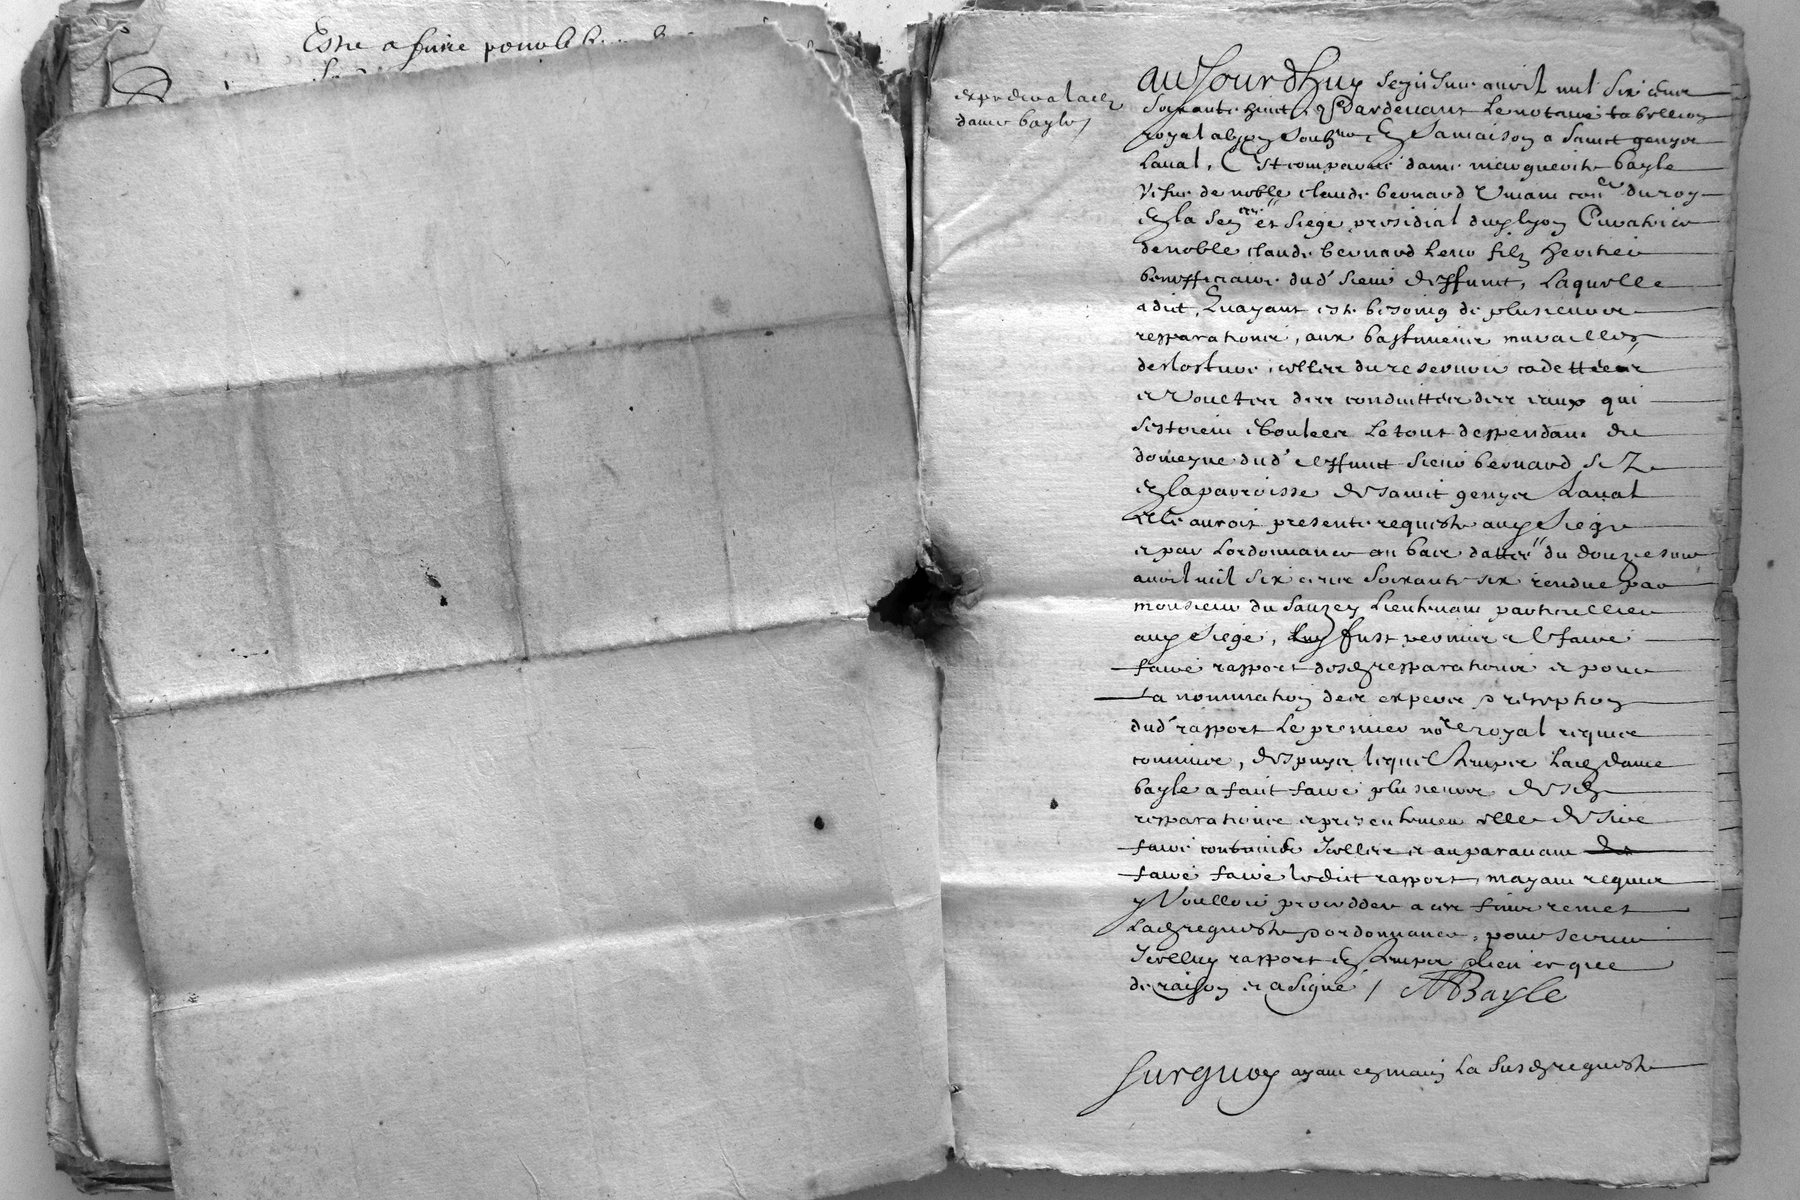 Estre a faire pour le
expedié a lad
dame bayle
aujourdhuy seziesme avril mil six cens
soixante huict pardevant le notaire tabellion
royal a lyon soubzne en sa maison a sainct genys
laval, Est comparue dame marguerite bayle
vefve de noble claude bernard vivant conr du roy
en la senes et siege presidial dud lyon Curatrice
de noble claude bernard leur filz heritier
benefficiaire dud sieur deffunct, laquelle
a dict, quayant este besoing de plusieurs
repparations, aux bastimens murailles
de closture, celles du reservoir cadettes
et voultes des conduittes des eaux qui
sestoient eboulees le tout deppendant du
domeyne dud deffunct sieur bernard sez
en la parroisse de sainct genys laval
elle auroit presente requeste aud siege
et par lordonnance au bas dattee du douziesme
avril mil six cens soixante six rendue par
monsieur du sauzey lieutenant particullier
aud siege, luy fust permis de faire
faire rapport desd repparations et pour
la nomination des expers reception
dud rapport le premier nore royal requis
commis, despuys lequel temps lad dame
bayle a faict faire plusieurs desd
repparations et presentement elle desire
faire continuer icelles et auparavant
faire faire ledict rapport, mayant requis
y voulloir procedder a ces fins remet
lad requeste ordonnance, pour servir
icelluy rapport en temps lieu et que
de raison et a signé / M Bayle
surquoy ayant en main la susd requeste